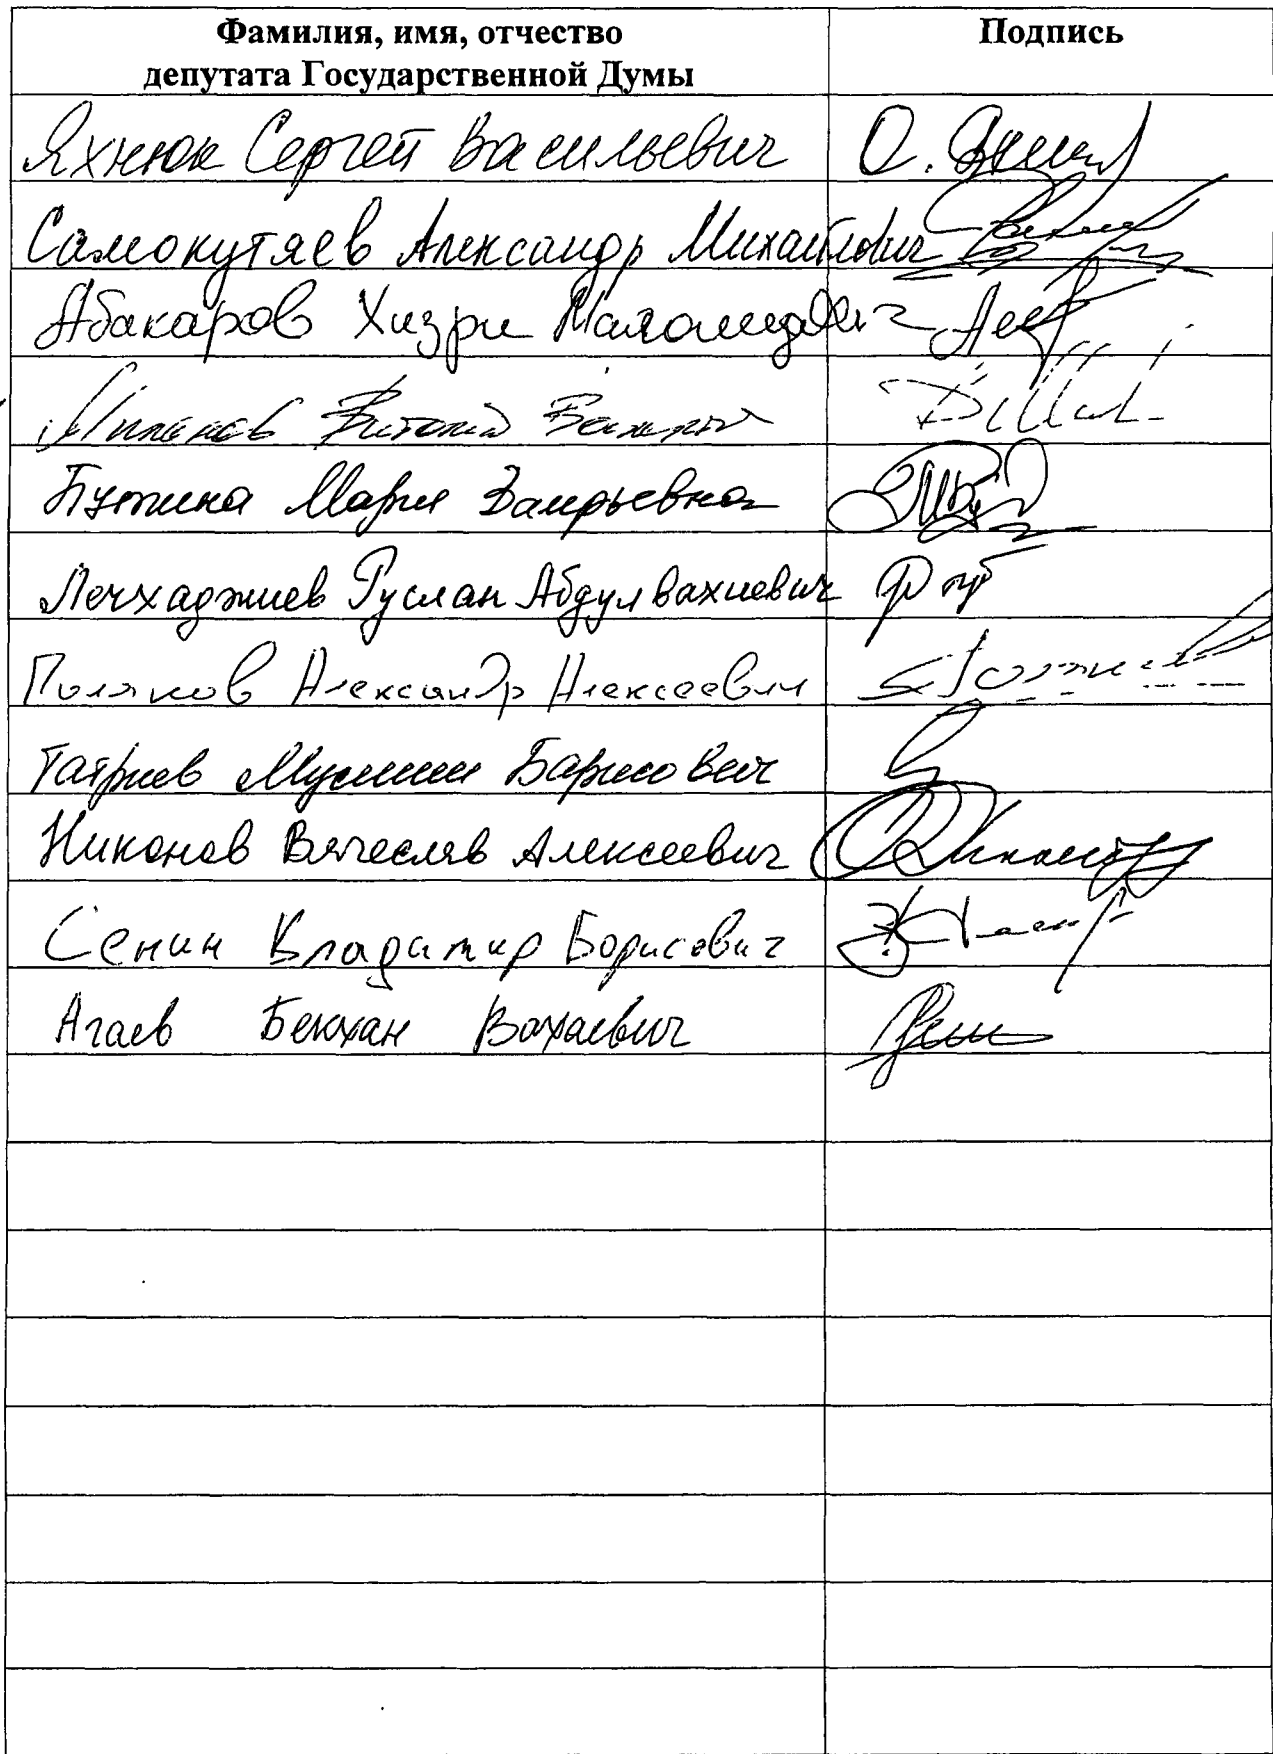 Фамилия, имя, отчество Подпись
депутата Государственной Думы
Яхнюк Сергей Васильевич
Самокутяев Александр Михайлович
Абакаров Хизри Магомедович
Милонов Виталий
Бутина Мария Валерьевна
Лечхаджиев Руслан Абдулвахиевич
Поляков Александр Алексеевич
Татриев Муслим Барисович
Никонов Вячеслав Алексеевич
Сенин Владимир Борисович
Агаев Бекхан Вахаевич